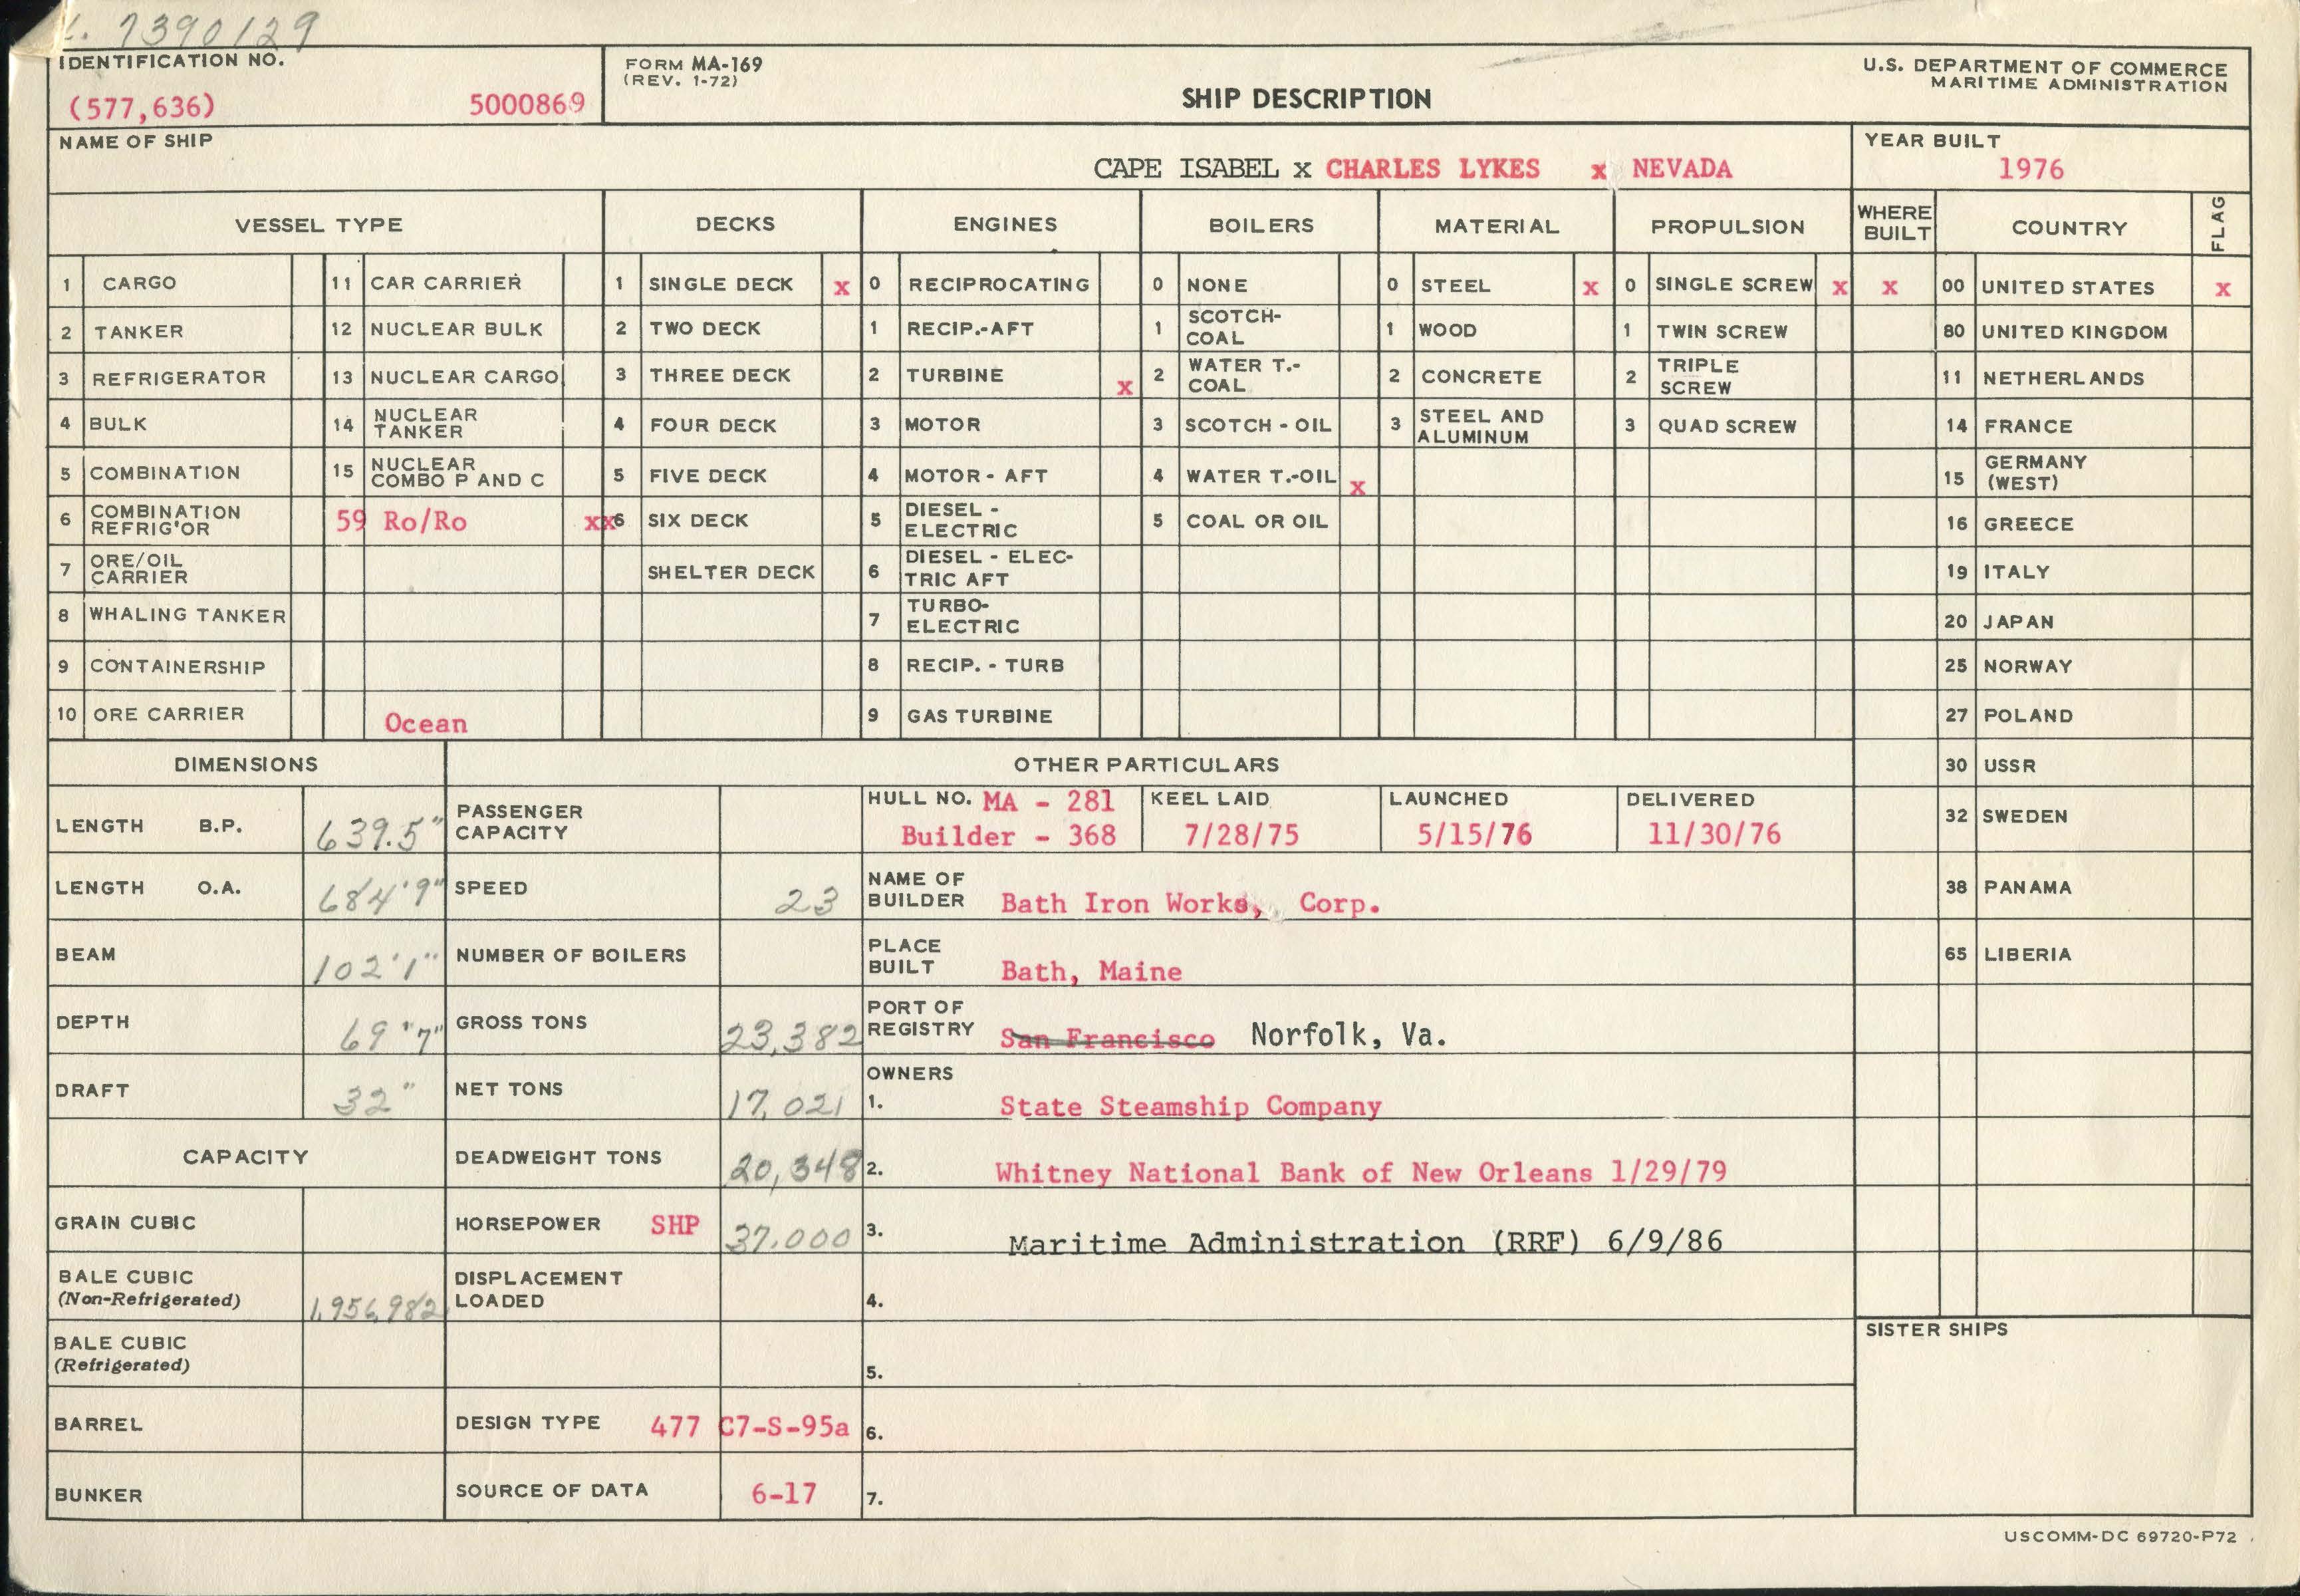 L. 7390129
IDENTIFICATION NO.
(577,636) 5000869
FORM MA-169
(REV. 1-72)
SHIP DESCRIPTION
U.S. DEPARTMENT OF COMMERCE
MARITIME ADMINISTRATION
NAME OF SHIP
CAPE ISABEL x CHARLES LYKES x NEVADA
YEAR BUILT
1976
VESSEL TYPE DECKS ENGINES BOILERS MATERIAL PROPULSION WHERE BUILT COUNTRY FLAG
1 CARGO 11 CAR CARRIER 1 SINGLE DECK x 0 RECIPROCATING 0 NONE 0 STEEL x 0 SINGLE SCREW x x 00 UNITED STATES x
2 TANKER 12 NUCLEAR BULK 2 TWO DECK 1 RECIP.-AFT 1 SCOTCH-COAL 1 WOOD 1 TWIN SCREW 80 UNITED KINGDOM
3 REFRIGERATOR 13 NUCLEAR CARGO 3 THREE DECK 2 TURBINE x 2 WATER T.-COAL 2 CONCRETE 2 TRIPLE SCREW 11 NETHERLANDS
4 BULK 14 NUCLEAR TANKER 4 FOUR DECK 3 MOTOR 3 SCOTCH - OIL 3 STEEL AND ALUMINUM 3 QUAD SCREW 14 FRANCE
5 COMBINATION 15 NUCLEAR COMBO P AND C 5 FIVE DECK 4 MOTOR - AFT 4 WATER T.-OIL x 15 GERMANY (WEST)
6 COMBINATION REFRIG'OR 59 Ro/Ro xx 6 SIX DECK 5 DIESEL - ELECTRIC 5 COAL OR OIL 16 GREECE
7 ORE/OIL CARRIER SHELTER DECK 6 DIESEL - ELEC-TRIC AFT 19 ITALY
8 WHALING TANKER 7 TURBO-ELECTRIC 20 JAPAN
9 CONTAINERSHIP 8 RECIP. - TURB 25 NORWAY
10 ORE CARRIER Ocean 9 GAS TURBINE 27 POLAND
DIMENSIONS OTHER PARTICULARS 30 USSR
LENGTH B.P. 639.5" PASSENGER CAPACITY HULL NO. MA - 281 Builder - 368 KEEL LAID 7/28/75 LAUNCHED 5/15/76 DELIVERED 11/30/76 32 SWEDEN
LENGTH O.A. 684'9" SPEED 23 NAME OF BUILDER Bath Iron Works, Corp. 38 PANAMA
BEAM 102'1" NUMBER OF BOILERS PLACE BUILT Bath, Maine 65 LIBERIA
DEPTH 69"7" GROSS TONS 23,382 PORT OF REGISTRY San Francisco Norfolk, Va.
DRAFT 32" NET TONS 17,021 OWNERS 1. State Steamship Company
CAPACITY DEADWEIGHT TONS 20,348 2. Whitney National Bank of New Orleans 1/29/79
GRAIN CUBIC HORSEPOWER SHP 37.000 3. Maritime Administration (RRF) 6/9/86
BALE CUBIC (Non-Refrigerated) 1,956,982 DISPLACEMENT LOADED 4.
BALE CUBIC (Refrigerated) 5. SISTER SHIPS
BARREL DESIGN TYPE 477 C7-S-95a 6.
BUNKER SOURCE OF DATA 6-17 7.
USCOMM-DC 69720-P72